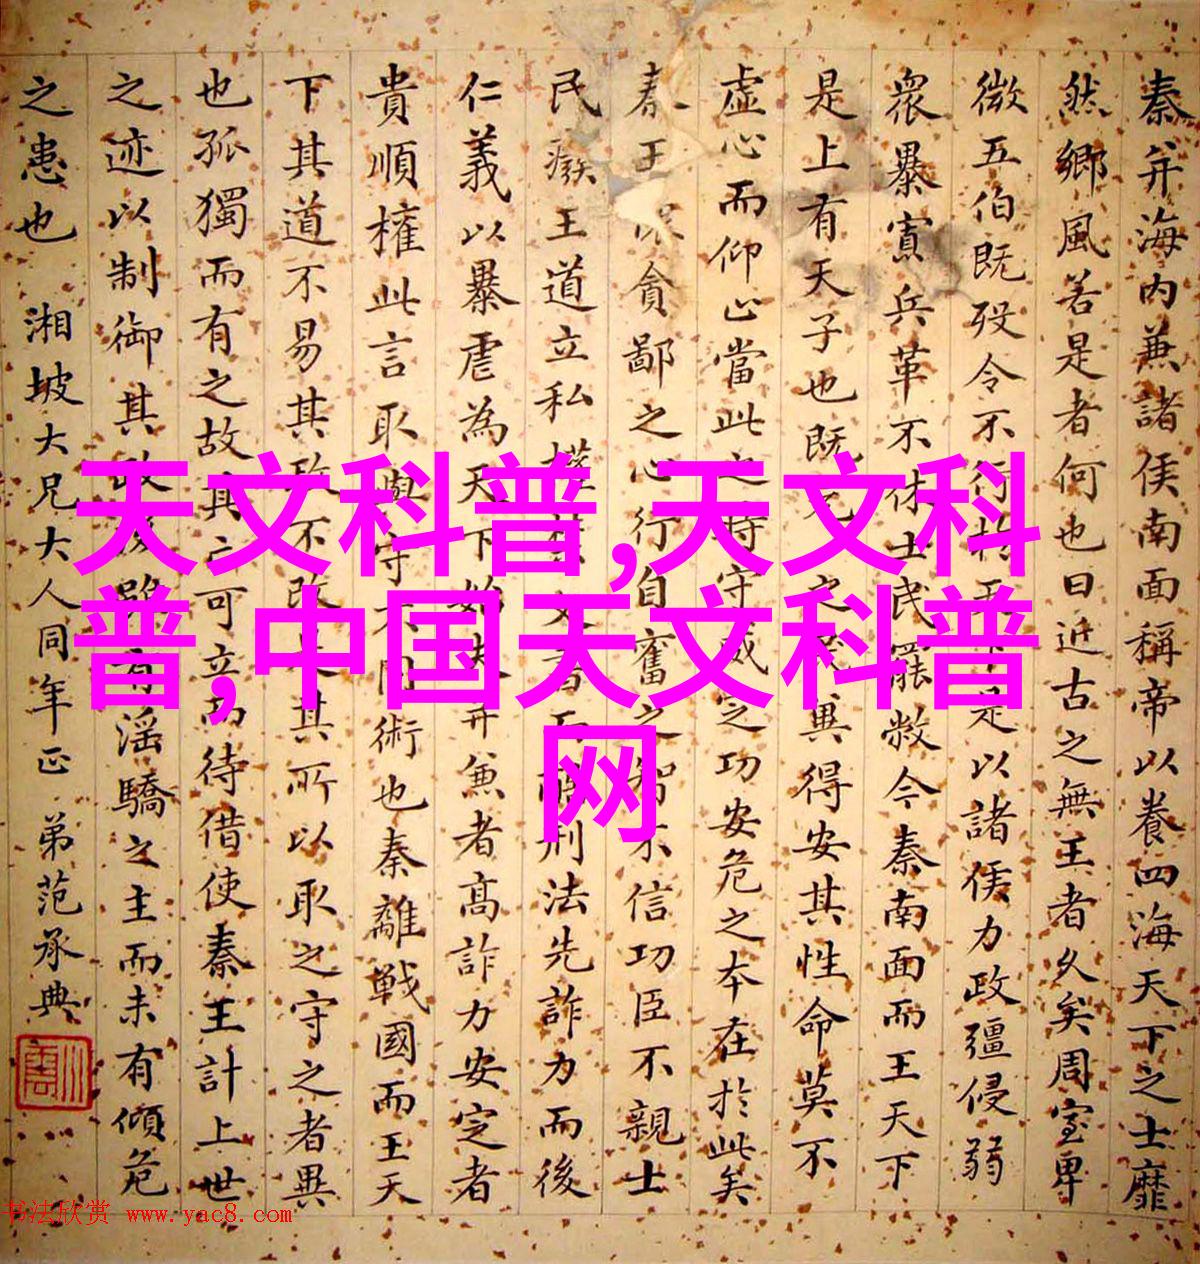 秦并海内兼諸侯南面稱帝以養四海天下之士靡
然鄉風若是者何也曰近古之無王者久矣周室卑
微五伯既殁令不行於天下是以諸侯力政彊侵弱
衆暴寡兵革不休士民罷敝今秦南面而王天下
是上有天子也既元之民兾得安其性命莫不
虚心而仰止當此之時守威定功安危之本在於此矣
秦王 貪鄙之心行自奮之智不信功臣不親士
民廢王道立私權禁文書而酷刑法先詐力而後
仁義以暴虐為天下始夫并兼者高詐力安定者
貴順權此言取與守不同術也秦離戰國而王天
下其道不易其政不改是其所以取之守之者異
也孤獨而有之故其亡可立而待借使秦王計上世
之迹以制御其政後雖有淫驕之主而未有傾危
之患也 湘坡大兄大人同年正 弟范承典
天文科普,天文科
普,中国天文科普
网
书法欣赏 www.yac8.com